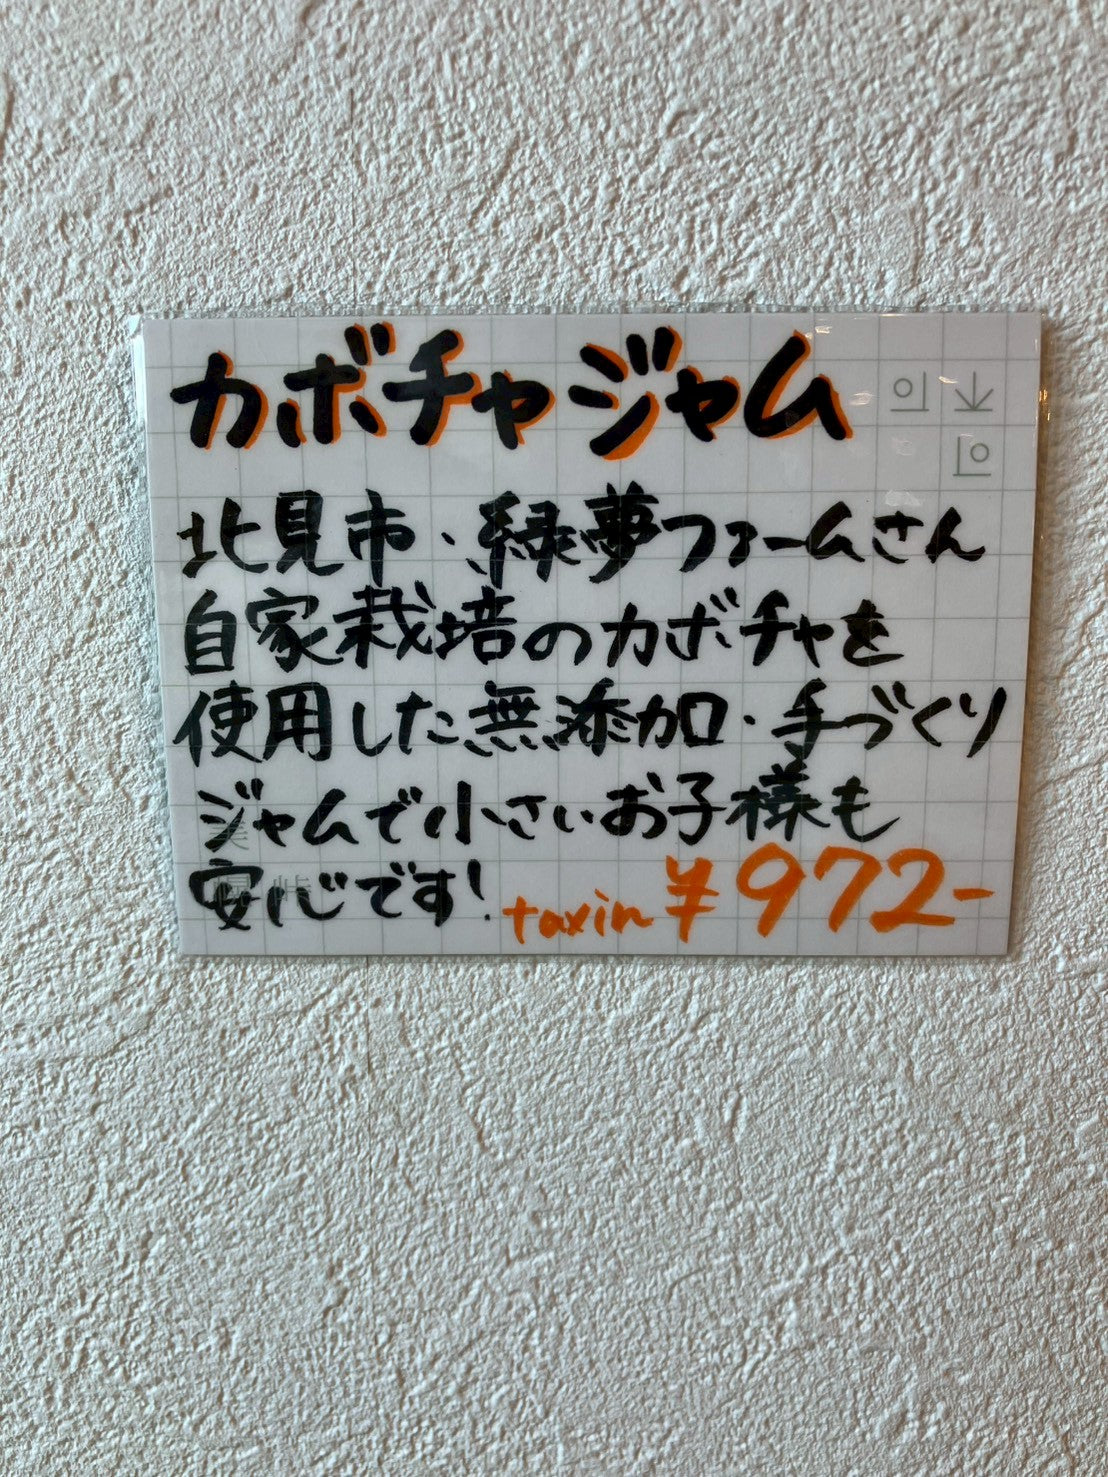 カボチャジャム
北見市・緑夢ファームさん
自家栽培のカボチャを
使用した無添加・手づくり
ジャムで小さいお子様も
安心です! taxin ¥972-